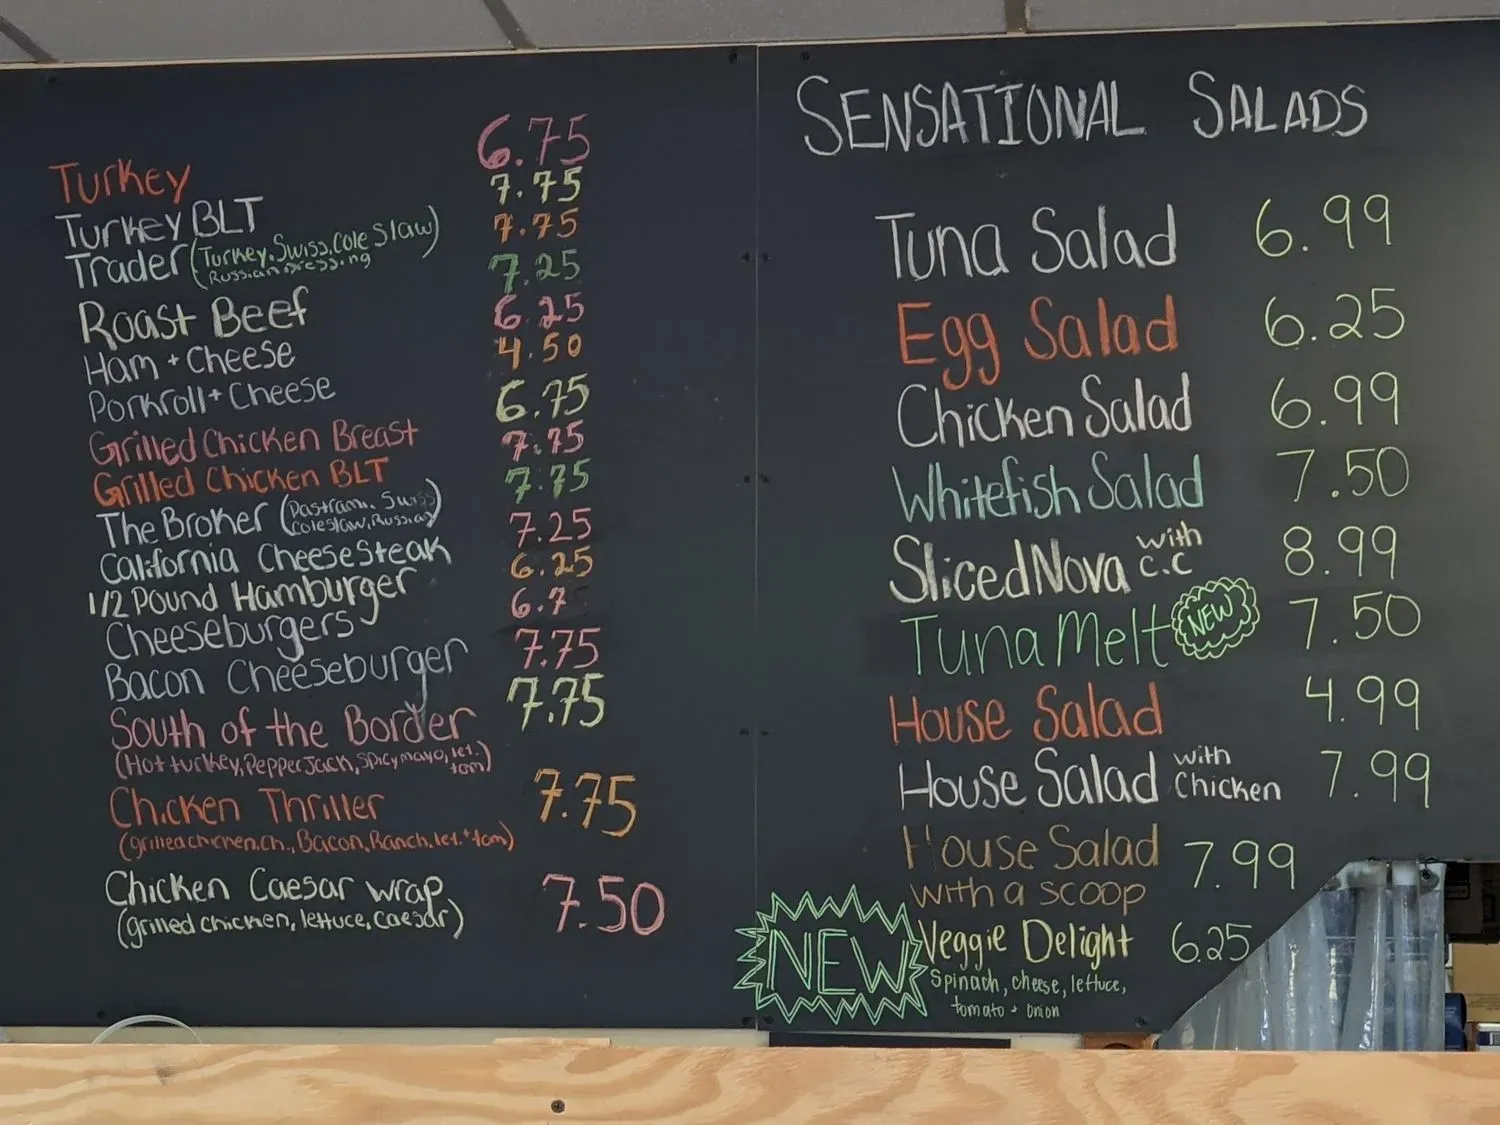 Turkey 6.75
Turkey BLT 7.75
Trader (Turkey, Swiss, Cole Slaw) 7.75
Russian Dressing
Roast Beef 7.25
Ham + Cheese 6.25
Porkroll + Cheese 4.50
Grilled Chicken Breast 6.75
Grilled Chicken BLT 7.75
The Broker (Pastrami, Swiss 7.75
Coleslaw, Russian)
California CheeseSteak 7.25
1/2 Pound Hamburger 6.25
Cheeseburgers 6.7
Bacon Cheeseburger 7.75
South of the Border 7.75
(Hot turkey, Pepper Jack, Spicy mayo, let.
tom)
Chicken Thriller 7.75
(grilled chicken, ch., Bacon, Ranch, let. + tom)
Chicken Caesar wrap 7.50
(grilled chicken, lettuce, Caesar)
SENSATIONAL SALADS
Tuna Salad 6.99
Egg Salad 6.25
Chicken Salad 6.99
Whitefish Salad 7.50
Sliced Nova with C.C 8.99
Tuna Melt NEW 7.50
House Salad 4.99
House Salad with Chicken 7.99
House Salad 7.99
with a scoop
NEW Veggie Delight 6.25
Spinach, cheese, lettuce,
tomato + onion